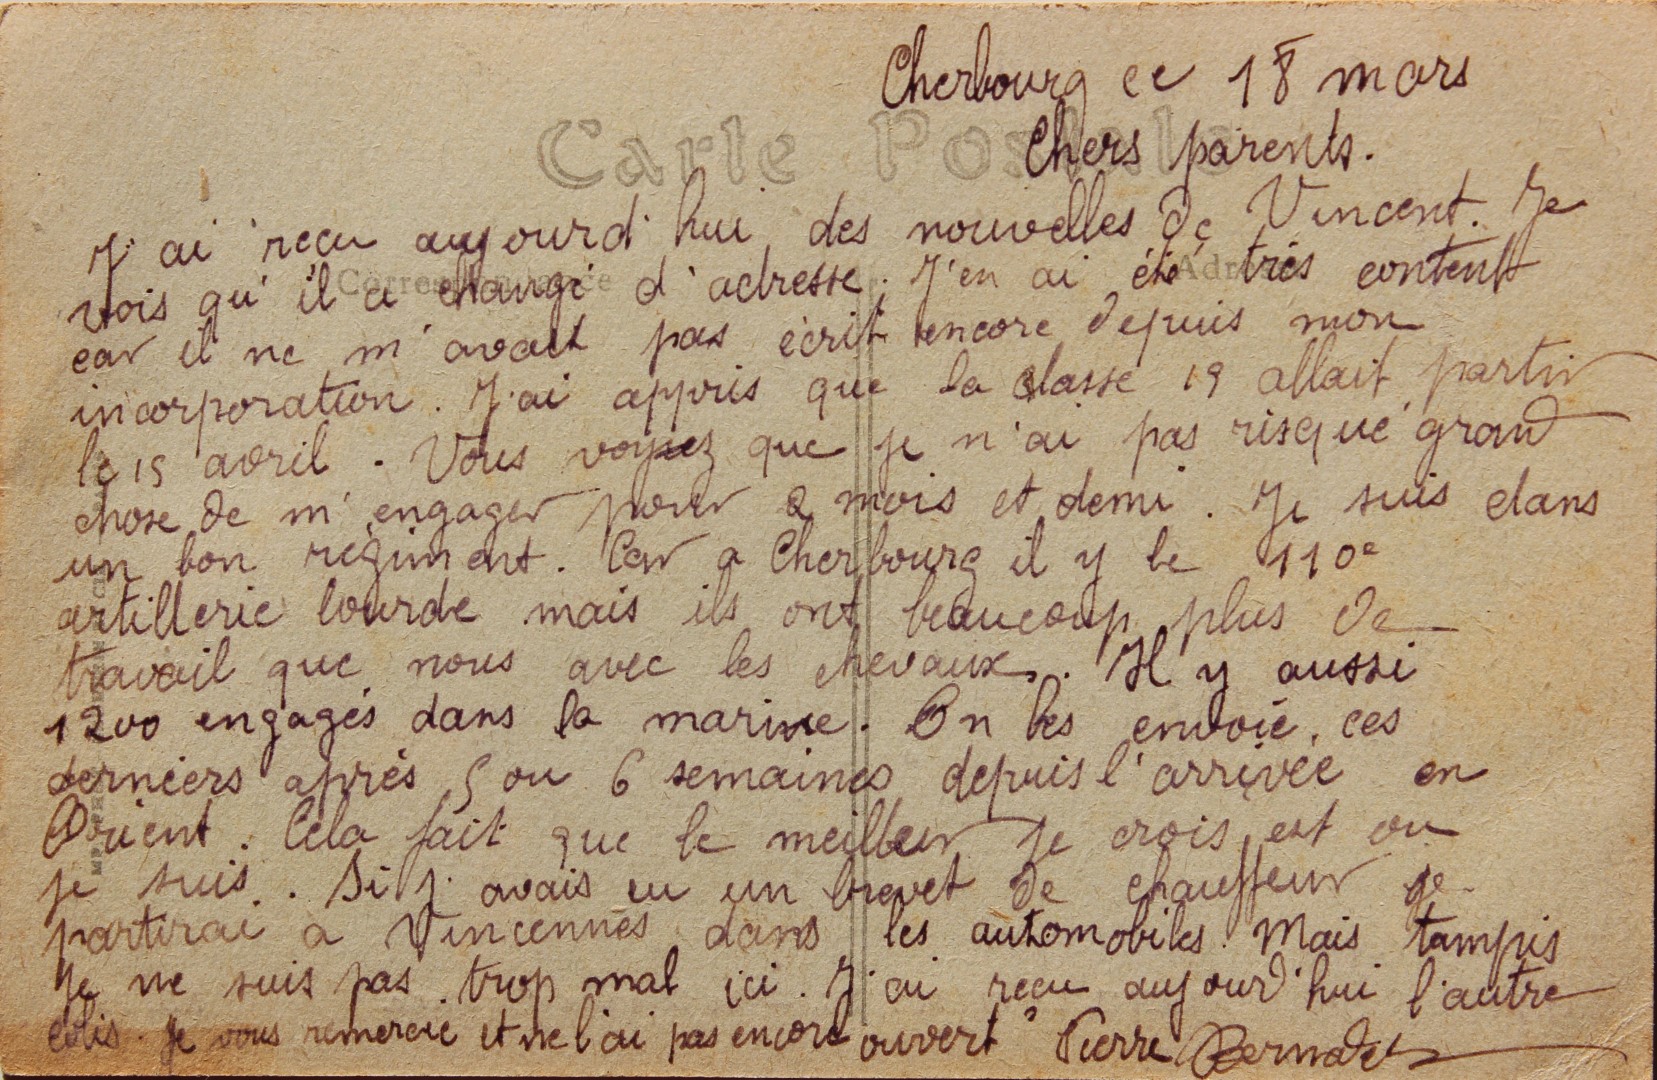 Cherbourg ce 18 mars
Carte Postale
Chers parents.
J'ai reçu aujourd'hui des nouvelles de Vincent. Je
Correspondance
vois qu'il a changé d'adresse. J'en ai été très content
car il ne m'avait pas écrit encore depuis mon
incorporation. J'ai appris que la classe 19 allait partir
le 15 avril. Vous voyez que je n'ai pas risqué grand
chose de m'engager pour 2 mois et demi. Je suis dans
un bon régiment. Car a Cherbourg il y le 110e
artillerie lourde mais ils ont beaucoup plus de
travail que nous avec les chevaux. Il y aussi
1200 engagés dans la marine. On les envoie, ces
derniers après 5 ou 6 semaines depuis l'arrivée en
Orient. Cela fait que le meilleur je crois est ou
je suis. Si j'avais eu un brevet de chauffeur je
partirai a Vincennes dans les automobiles. Mais tampis
Je ne suis pas trop mal ici. J'ai reçu aujourd'hui l'autre
colis. Je vous remercie et ne l'ai pas encore ouvert Pierre Bernadet